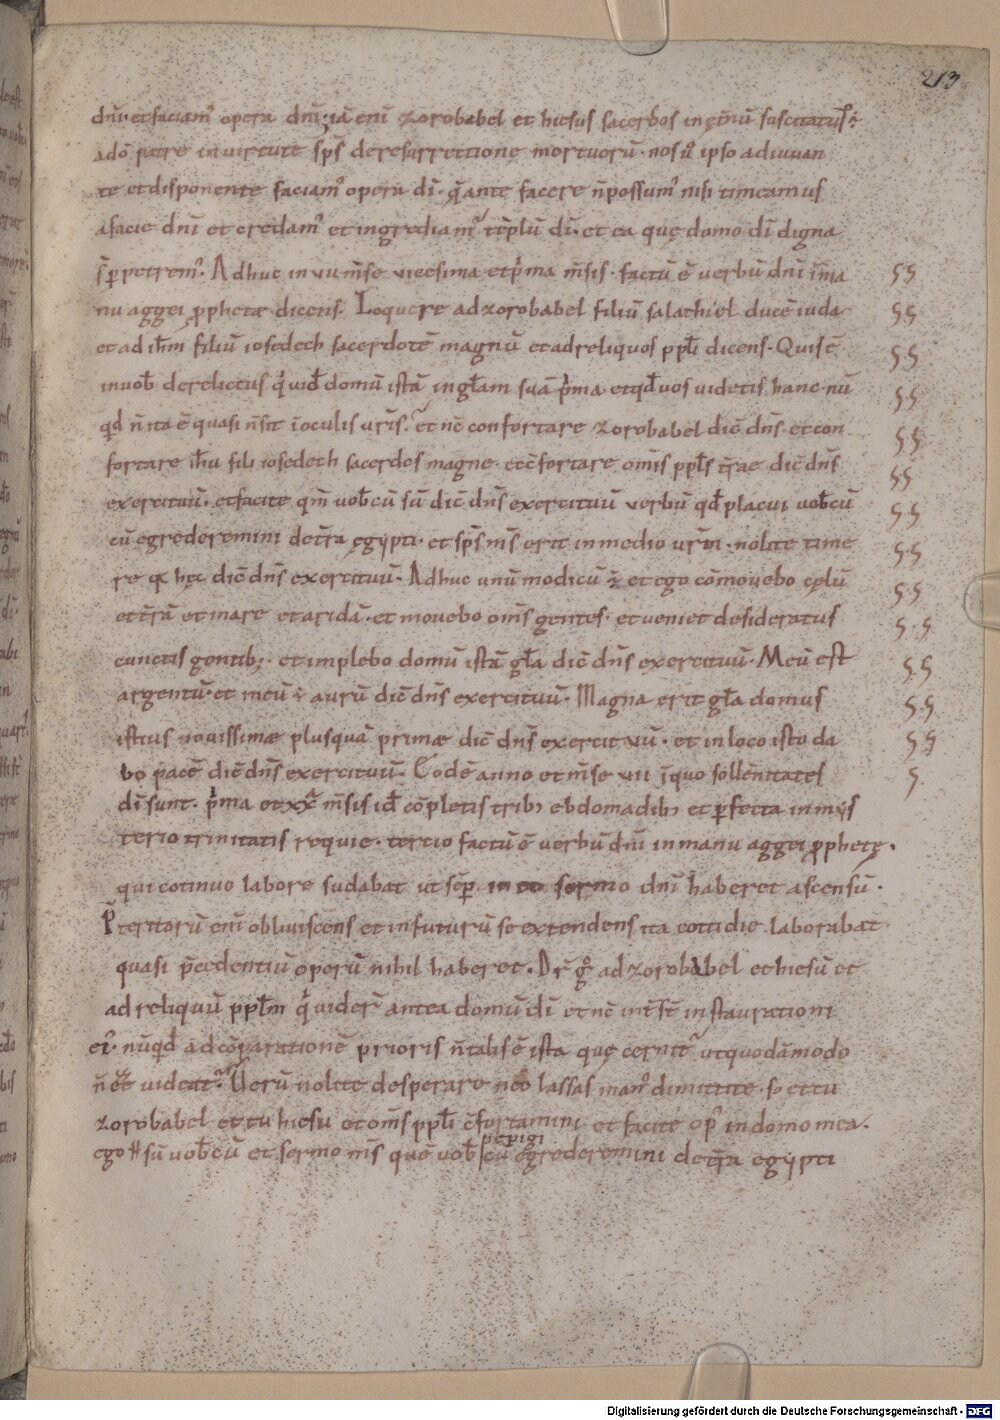 213
dnī· et faciam᾽ opera dnī· iā enī zorobabel et hiesus sacerdos in ęt̄nū suscitatus ē
a dō patre in virtute sp̄s de resurrectione mortuorū· nos ū ipso adiuuan
te et disponente faciam᾽ opera dī· q̄ ante facere n̄ possum᾽ nisi timeamus
a facie dnī et credam᾽ et ingrediam᾽ tēplū dī· et ea quę domo dī digna
Adhuc in vii m̄se vicesima et p̄ma m̄sis· factū ē verbū dnī ī ma
nu aggei p̱phetæ dicens· Loquere ad zorobabel filiū salathiel ducē iuda
et ad ih̄m filiū iosedech sacerdotē magnū et ad reliquos pp̄li dicens· Quis ē
in vob̄ derelictus q̇ vid̄ domū istā in gl̄am suā p̄ma et qd̄ vos videtis hanc nū
qd̄ n̄ ita ē quasi n̄ sit ī oculis vr̄is· et nc̄ confortare zorobabel dic̄ dn̄s· et con
fortare ih̄u fili iosedech sacerdos magne· et c̄fortare om̄is pp̄ls t̄rae dic̄ dn̄s
exercituū· et facite qm̄ vob̄cū sū dic̄ dn̄s exercituū verbū qd̄ placui vob̄cū
cū egrederemini de t̄ra ęgypti· et sp̄s m̄s erit in medio vr̄m· nolite time
re q̄ hęc dic̄ dn̄s exercituū· Adhuc unū modicū ē et ego cōmovebo cęlū
et t̄rā et mare et aridā· et movebo om̄s gentes· et veniet desideratus
cunctis gentib;· et implebo domū istā gl̄a dic̄ dn̄s exercituū· Meū est
argentū· et meū ē aurū dic̄ dn̄s exercituū· Magna erit gl̄a domus
istius novissimæ plusquā primæ dic̄ dn̄s exercituū· et in loco isto da
bo pacē dic̄ dn̄s exercituū· Eodē anno et m̄se vii ī quo sollēnitates
dī sunt· p̄ma et xx̄ m̄sis id̄ cōpletis trib; ebdomadib; et p̱fecta in mis
terio trinitatis requie· tercio factū ē verbū dnī in manu aggei p̱phetę·
qui cotinuo labore sudabat ut sēp in eo sermo dnī haberet ascensū·
P̄teritorū enī obliviscens et in futurū se extendens ita cottidie laborabat
quasi p̄cedentiū operū nihil haberet· Dr̄ g° ad zorobabel et hiesū et
ad reliquū pp̄lm q̇ vider̄ antea domū dī et nc̄ int̄sē instaurationi
ei᾽· nūqd̄ ad cōparationē prioris n̄ talis ē ista quę cernit᾽ ut quodāmodo
n̄ ēē videat᾽· Verū nolite desperare nec lassas man᾽ dimittite· s; et tu
zorobabel et tu hiesu et om̄s pp̄li c̄fortamini et facite op᾽ in domo mea·
pepigi
ego sū vob̄cū et sermo m̄s quē vob̄cū egrederemini de t̄ra egypti
Digitalisierung gefördert durch die Deutsche Forschungsgemeinschaft - DFG